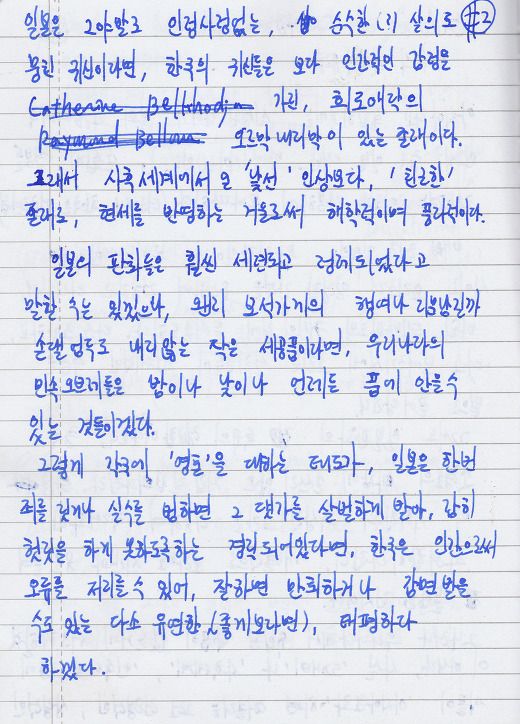 일본은 그야말로 인정사정없는, 순수한(?) 살의로 #2
뭉친 귀신이라면, 한국의 귀신들은 보다 인간적인 감정을
Catherine 가진, 희로애락의
Raymond Bellour 오르락 내리락이 있는 존재이다.
그래서 사후세계에서 온 '낯선' 인상보다, '친근한'
존재로, 현세를 반영하는 거울로써 해학적이며 풍자적이다.
일본의 판화들은 훨씬 세련되고 정제되었다고
말할 수는 있겠으나, 왠지 보석가게의 행여나 기스날까
손댈 엄두도 내리않는 작은 세공품이라면, 우리나라의
민속 오브제들은 밤이나 낮이나 언제든 품에 안을 수
있는 것들이겠다.
그렇게 각국에, '영혼'을 대하는 태도가, 일본은 한번
죄를 짓거나 실수를 범하면 그 댓가를 살벌하게 받아, 감히
헛짓을 하게 못하도록하는 경직되어있다면, 한국은 인간으로써
오류를 저지를 수 있어, 잘하면 만회하거나 감면 받을
수도 있는 다소 유연한, (좋게보라면), 태평하다
하겠다.